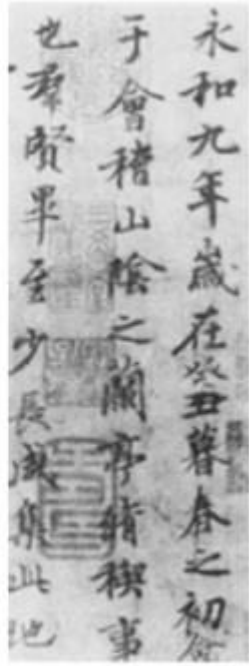 永和九年歲在癸丑暮春之初會
于會稽山陰之蘭亭脩禊事
也羣賢畢至少長咸集此地